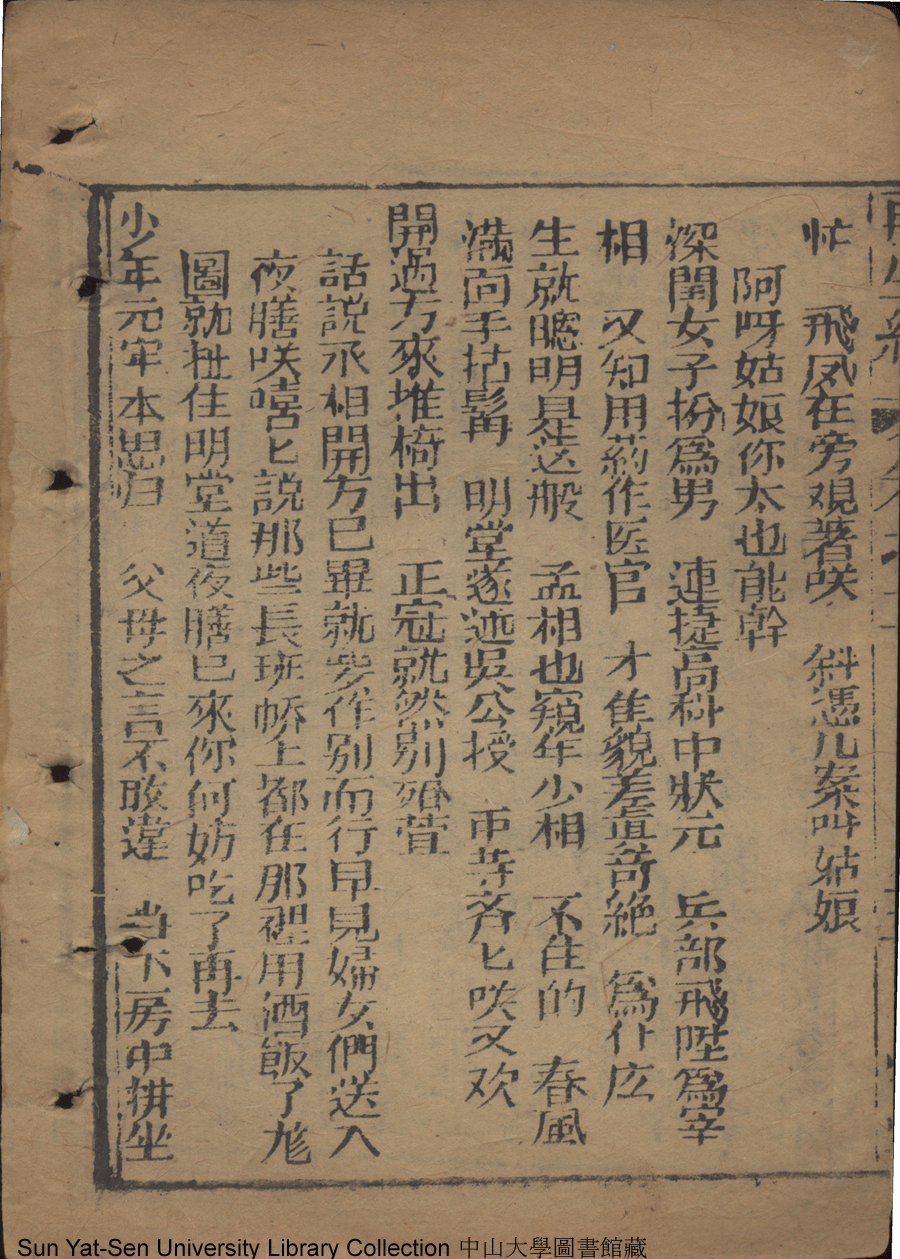 忙 飛凤在旁观著咲 斜憑几案叫姑娘
阿呀姑娘你太也能幹
深閨女子扮爲男 連捷高科中狀元 兵部飛陞爲宰
相 又知用葯作医官 才隹貌羞竒絶 爲什庅
生就聰明是这般 孟相也窺年少相 不住的 春風
滿面手拈髯 明堂遂述吳公授 各匕咲又欢
開過方來堆椅出 正冠就然别
話說丞相開方已畢就要作别而行早見婦女們送入
夜膳咲嘻匕說那些長班轎上都在那裡用酒飯了
圖就扯住明堂道夜膳已來你何妨吃了再去
少年元宰本思归 父母之言不敢違 当下房中拼坐
Sun Yat-Sen University Library Collection 中山大學圖書館藏